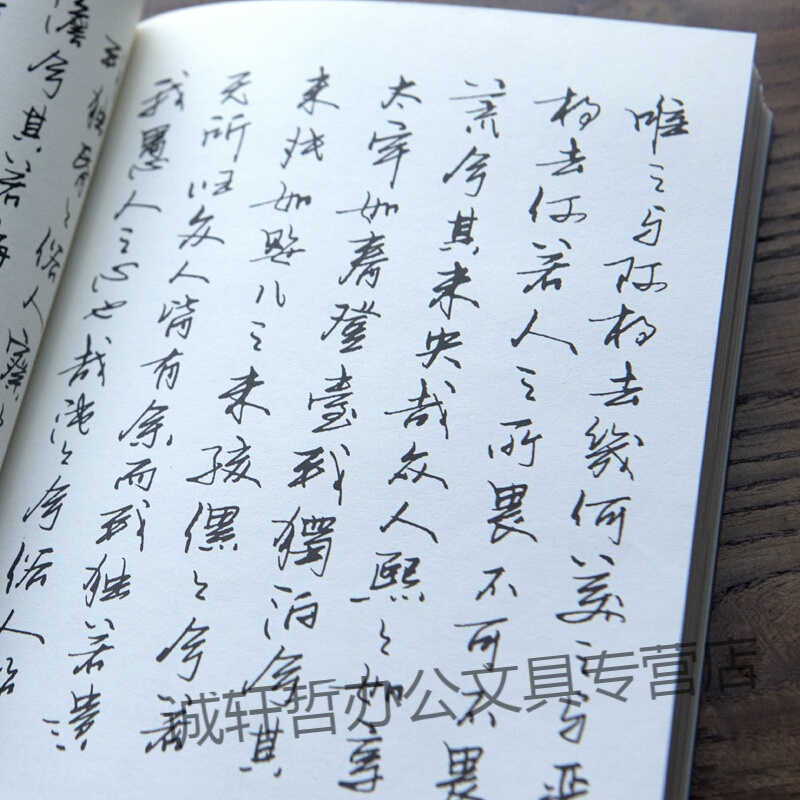 唯之与阿相去幾何美之与
相去何若人之所畏不可不畏
荒兮其未央哉众人熙々如享
太牢如春登臺我獨泊兮其
未兆如婴儿之未孩儽々兮若
无所归众人皆有余而我独若遗
我愚人之心也哉沌々兮俗人昭
独昏々俗人察々
澹兮其若海
诚轩哲办公文具专营店